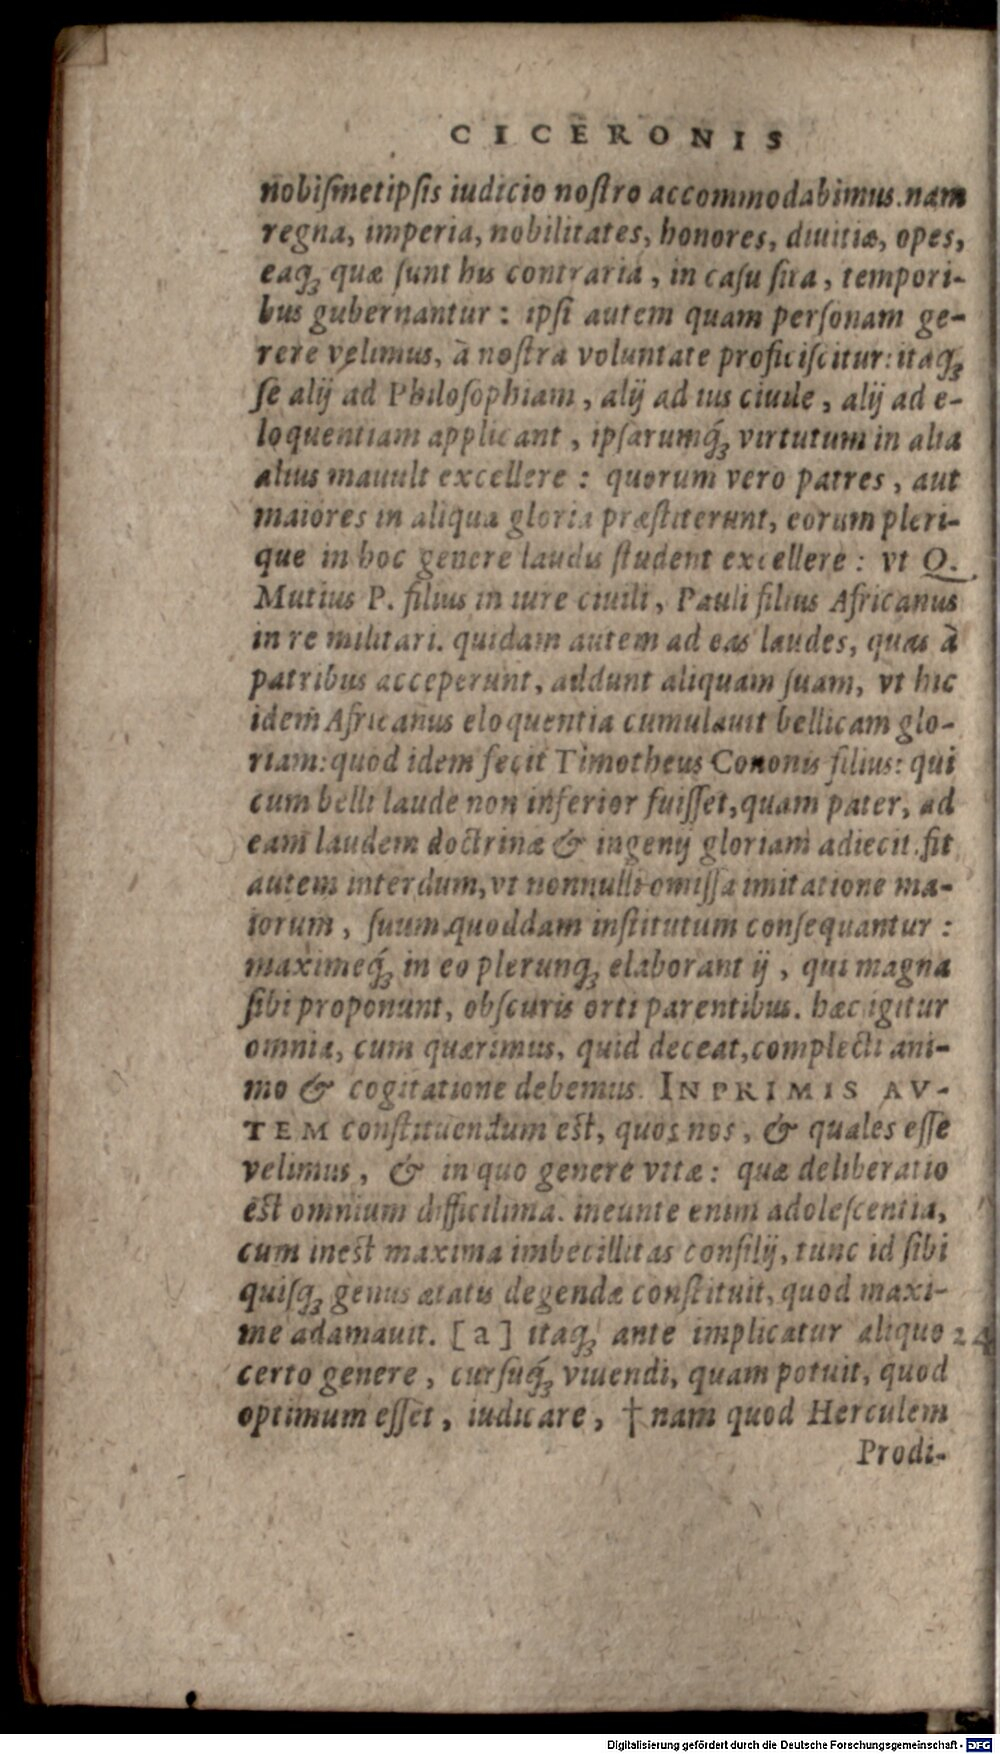 CICERONIS
nobiſmetipſis iudicio noſtro accommodabimus. nam
regna, imperia, nobilitates, honores, diuitiæ, opes,
eaq́ꝫ quæ ſunt his contraria, in caſu ſita, tempori-
bus gubernantur: ipſi autem quam perſonam ge-
rere velimus, à noſtra voluntate proficiſcitur: itaqꝫ
ſe alij ad Philoſophiam, alij ad ius ciuile, alij ad e-
loquentiam applicant, ipſarumq́ꝫ virtutum in alia
alius mauult excellere: quorum vero patres, aut
maiores in aliqua gloria præſtiterunt, eorum pleri-
que in hoc genere laudis ſtudent excellere: vt Q.
Mutius P. filius in iure ciuili, Pauli filius Africanus
in re militari. quidam autem ad eas laudes, quas à
patribus acceperunt, addunt aliquam ſuam, vt hic
idem Africanus eloquentia cumulauit bellicam glo-
riam: quod idem fecit Timotheus Cononis filius: qui
cum belli laude non inferior fuiſſet, quam pater, ad
eam laudem doctrinæ & ingenij gloriam adiecit. fit
autem interdum, vt nonnulli omiſſa imitatione ma-
iorum, ſuum quoddam inſtitutum conſequantur:
maximeq́ꝫ in eo plerunqꝫ elaborant ij, qui magna
ſibi proponunt, obſcuris orti parentibus. hæc igitur
omnia, cum quærimus, quid deceat, complecti ani-
mo & cogitatione debemus. INPRIMIS AV-
TEM conſtituendum est, quos nos, & quales eſſe
velimus, & in quo genere vitæ: quæ deliberatio
est omnium difficilima. ineunte enim adoleſcentia,
cum inest maxima imbecillitas conſilij, tunc id ſibi
quiſqꝫ genus ætatis degendæ conſtituit, quod maxi-
me adamauit. [a] itaqꝫ ante implicatur aliquo 24
certo genere, curſuq́ꝫ viuendi, quam potuit, quod
optimum eſſet, iudicare, † nam quod Herculem
Prodi-
Digitalisierung gefördert durch die Deutsche Forschungsgemeinschaft - DFG